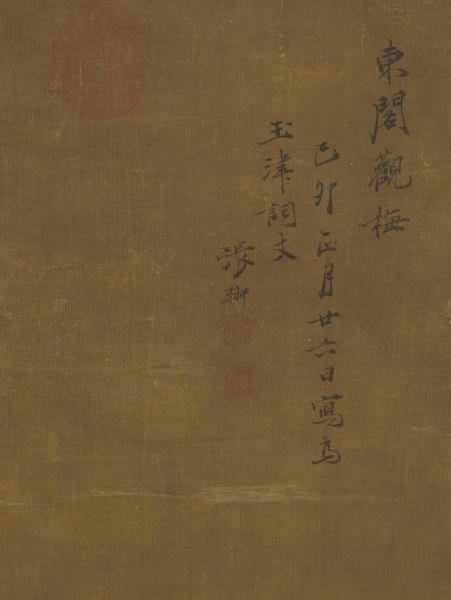 東閣觀梅
己卯正月廿六日寫爲
玉津詞丈
張翀